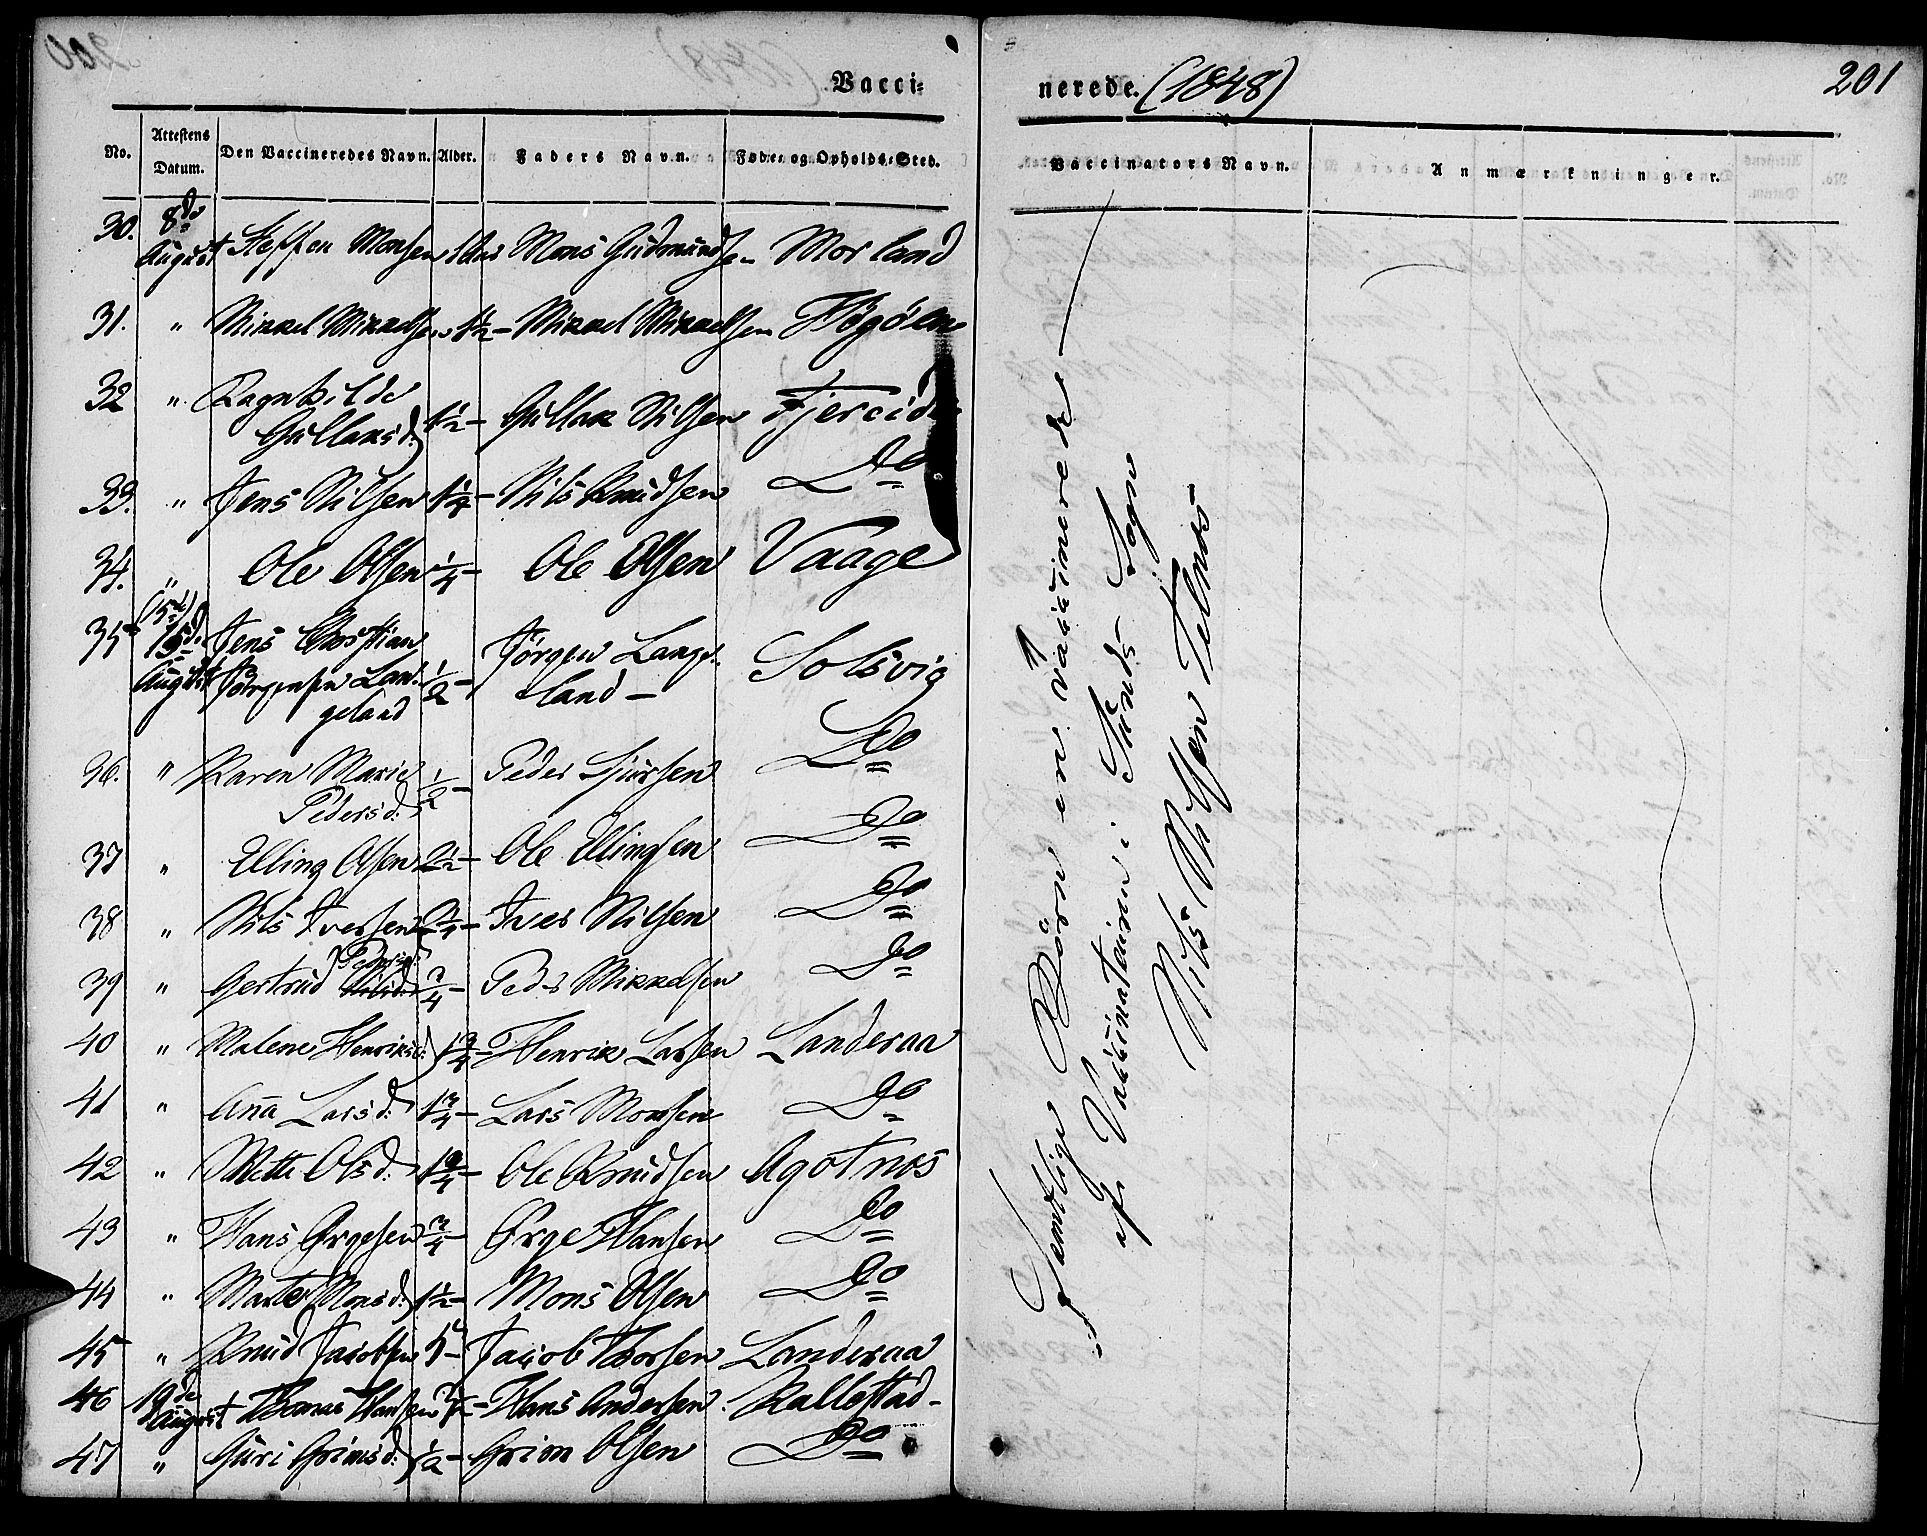 Vacci=
nerede. (1848)
201
No. Attestens Datum. Den Vaccineredes Navn. Alder. Faders Navn. Føde= og Opholds=Sted.
Vaccinators Navn. Anmærkninger.
30. 8de August Steffen Monsen 1 Mons Gudmundsen Morland
31. " Mikkel Mikkelsen 1½ - Mikkel Mikkelsen
32 " Ragnhilde
Gullaksd: 1½ - Gullak Nilsen
33. " Jens Nilsen 1¼ - Nils Knudsen Do
34. " Ole Olsen ¼ - Ole Olsen Vaage
35 15d. Jens Christian Jörgen Lange-
August Jörgensen Lan- ½ - land - Solsvig
geland
36. " Karen Marie ½ - Peder Sjursen Do
Pedersd:
37 " Elling Olsen 2½ - Ole Ellingsen Do
38 " Nils Iversen Iver Nilsen Do
39 " Gertrud Pedersd: ¾ - Peder Mikkelsen Do
40 " Malene Henriksd: 1¾ - Henrik Larsen Landeraa
41 " Aña Larsd: 1¾ - Lars Monsen Do
42 " Mette Olsd: 1¾ - Ole Knudsen Agotnes
43 " Hans Ørgesen ¾ - Ørge Hansen Do
44 " Marte Monsd: 1½ - Mons Olsen Do
45 " Knud Jacobsen Jacob Thorsen Landeraa
46 19de August Thomas Hansen Hans Andersen Kallestad -
47 " Guri Grimsd: ½ - Grim Olsen Do
Samtlige Börn ere vaccinerede
af Vaccinateuren i Sunds Sogn
Nils Nilsen Telnes